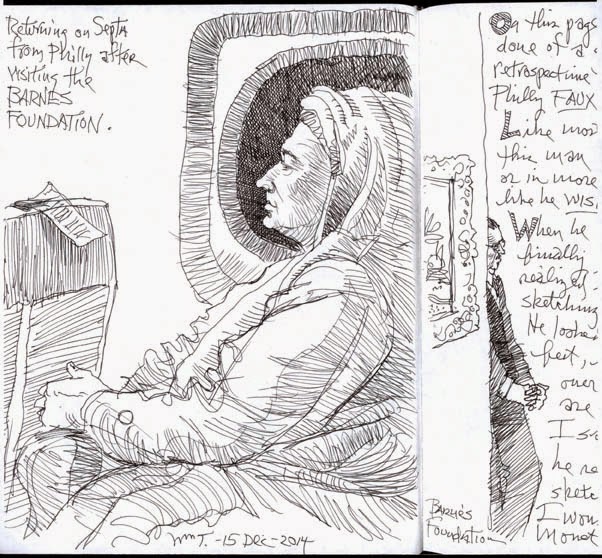 Returning on Septa
from Philly after
visiting the
BARNES
FOUNDATION.
15 DEC - 2014
BARNES
Foundation
On this page
done of a
retrospective
Philly FAUX
Like mos
this man
or in more
like he WIS
When he
finally
realized
sketching
He looke
feet,
over
are
I s
he re
sketc
I won
Monet